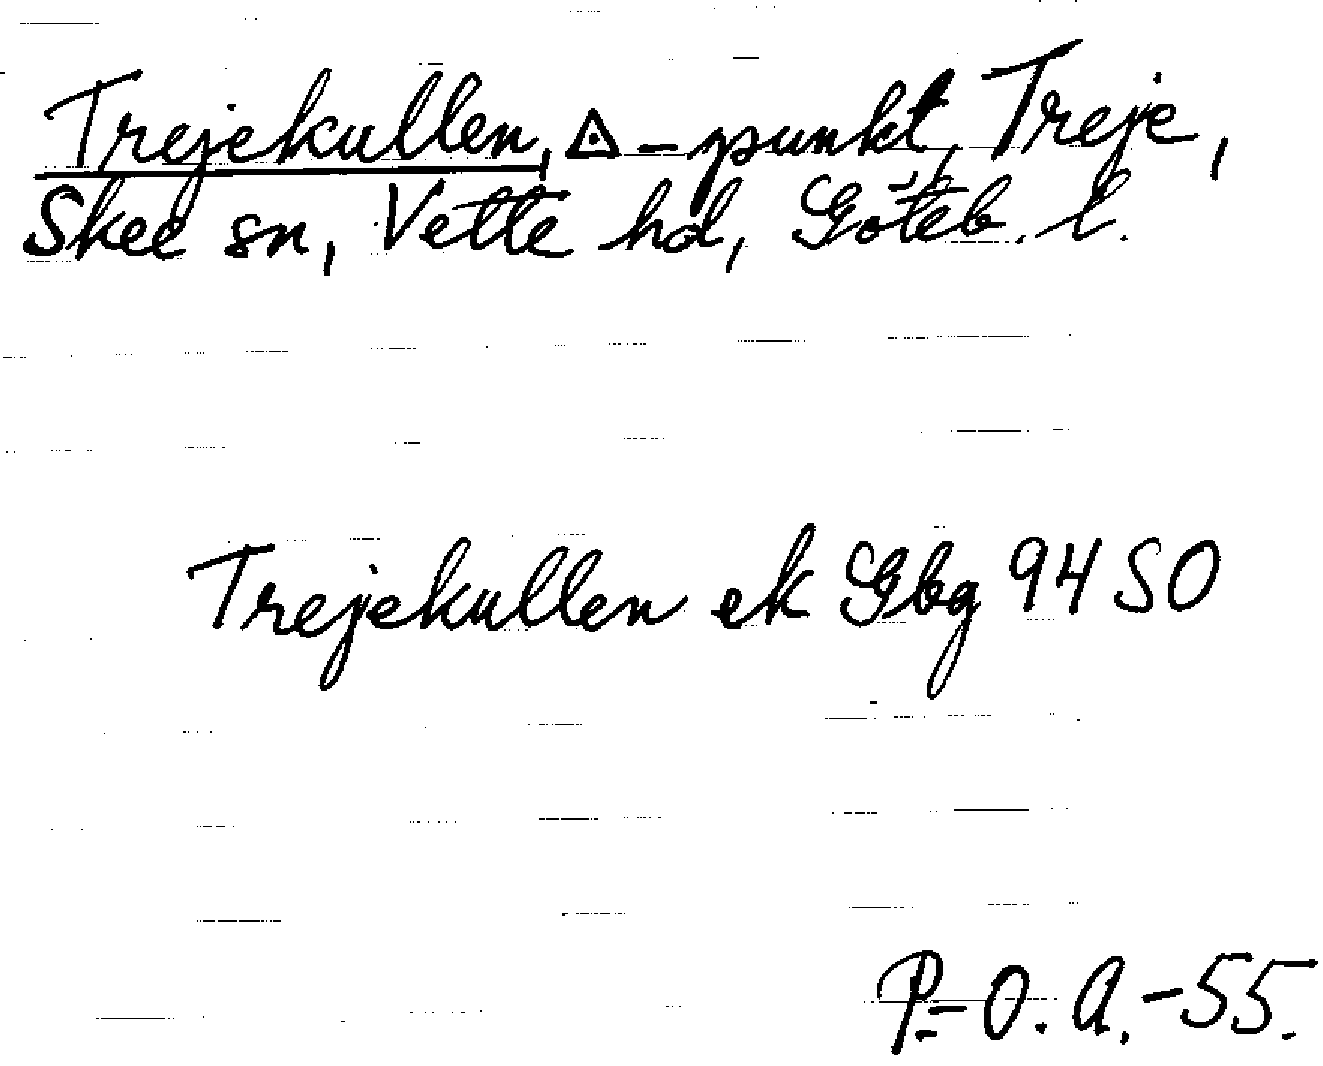 Trejekullen, ◬-punkt, Treje,
Skee sn, Vette hd, Göteb. l.
Trejekullen ek Gbg 94 SO
P.-O. A. -55.